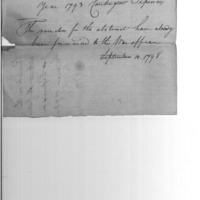 Year 1793 Contingent Expenses
The vouchers for the abstract have already
been forwarded to the War office
September 10. 1798